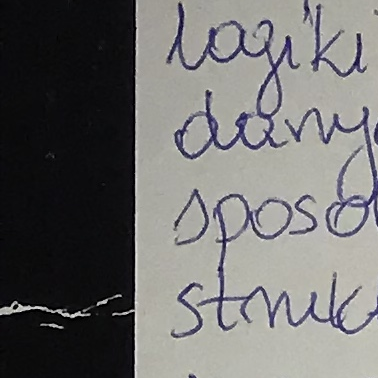 logiki
dany
sposo
struk